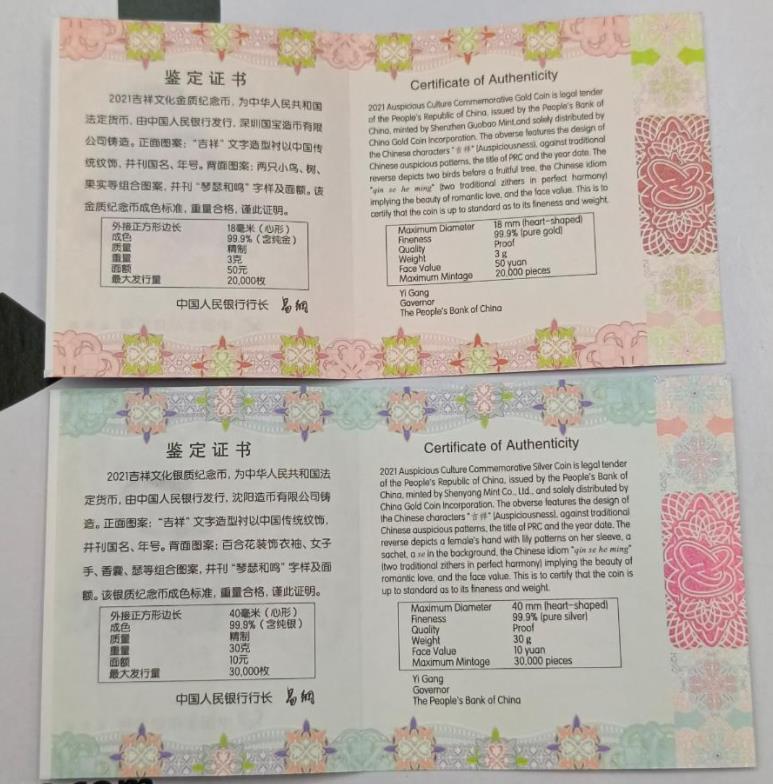 鉴定证书
2021吉祥文化金质纪念币，为中华人民共和国
法定货币，由中国人民银行发行，深圳国宝造币有限
公司铸造。正面图案：“吉祥”文字造型衬以中国传
统纹饰，并刊国名、年号。背面图案：两只小鸟、树、
果实等组合图案，并刊“琴瑟和鸣”字样及面额。该
金质纪念币成色标准，重量合格，谨此证明。
外接正方形边长 18毫米（心形）
成色 99.9%（含纯金）
质量 精制
重量 3克
面额 50元
最大发行量 20,000枚
中国人民银行行长 易纲
Certificate of Authenticity
2021 Auspicious Culture Commemorative Gold Coin is legal tender
of the People's Republic of China, issued by the People's Bank of
China, minted by Shenzhen Guobao Mint,and solely distributed by
China Gold Coin Incorporation. The obverse features the design of
the Chinese characters "吉祥" (Auspiciousness), against traditional
Chinese auspicious patterns, the title of PRC and the year date. The
reverse depicts two birds before a fruitful tree, the Chinese idiom
"qin se he ming" (two traditional zithers in perfect harmony)
implying the beauty of romantic love, and the face value. This is to
certify that the coin is up to standard as to its fineness and weight.
Maximum Diameter 18 mm (heart-shaped)
Fineness 99.9% (pure gold)
Quality Proof
Weight 3 g
Face Value 50 yuan
Maximum Mintage 20,000 pieces
Yi Gang
Governor
The People's Bank of China
鉴定证书
2021吉祥文化银质纪念币，为中华人民共和国法
定货币，由中国人民银行发行，沈阳造币有限公司铸
造。正面图案：“吉祥”文字造型衬以中国传统纹饰，
并刊国名、年号。背面图案：百合花装饰衣袖、女子
手、香囊、瑟等组合图案，并刊“琴瑟和鸣”字样及面
额。该银质纪念币成色标准，重量合格，谨此证明。
外接正方形边长 40毫米（心形）
成色 99.9%（含纯银）
质量 精制
重量 30克
面额 10元
最大发行量 30,000枚
中国人民银行行长 易纲
Certificate of Authenticity
2021 Auspicious Culture Commemorative Silver Coin is legal tender
of the People's Republic of China, issued by the People's Bank of
China, minted by Shenyang Mint Co., Ltd., and solely distributed by
China Gold Coin Incorporation. The obverse features the design of
the Chinese characters "吉祥" (Auspiciousness), against traditional
Chinese auspicious patterns, the title of PRC and the year date. The
reverse depicts a female's hand with lily patterns on her sleeve, a
sachet, a se in the background, the Chinese idiom "qin se he ming"
(two traditional zithers in perfect harmony) implying the beauty of
romantic love, and the face value. This is to certify that the coin is
up to standard as to its fineness and weight.
Maximum Diameter 40 mm (heart-shaped)
Fineness 99.9% (pure silver)
Quality Proof
Weight 30 g
Face Value 10 yuan
Maximum Mintage 30,000 pieces
Yi Gang
Governor
The People's Bank of China